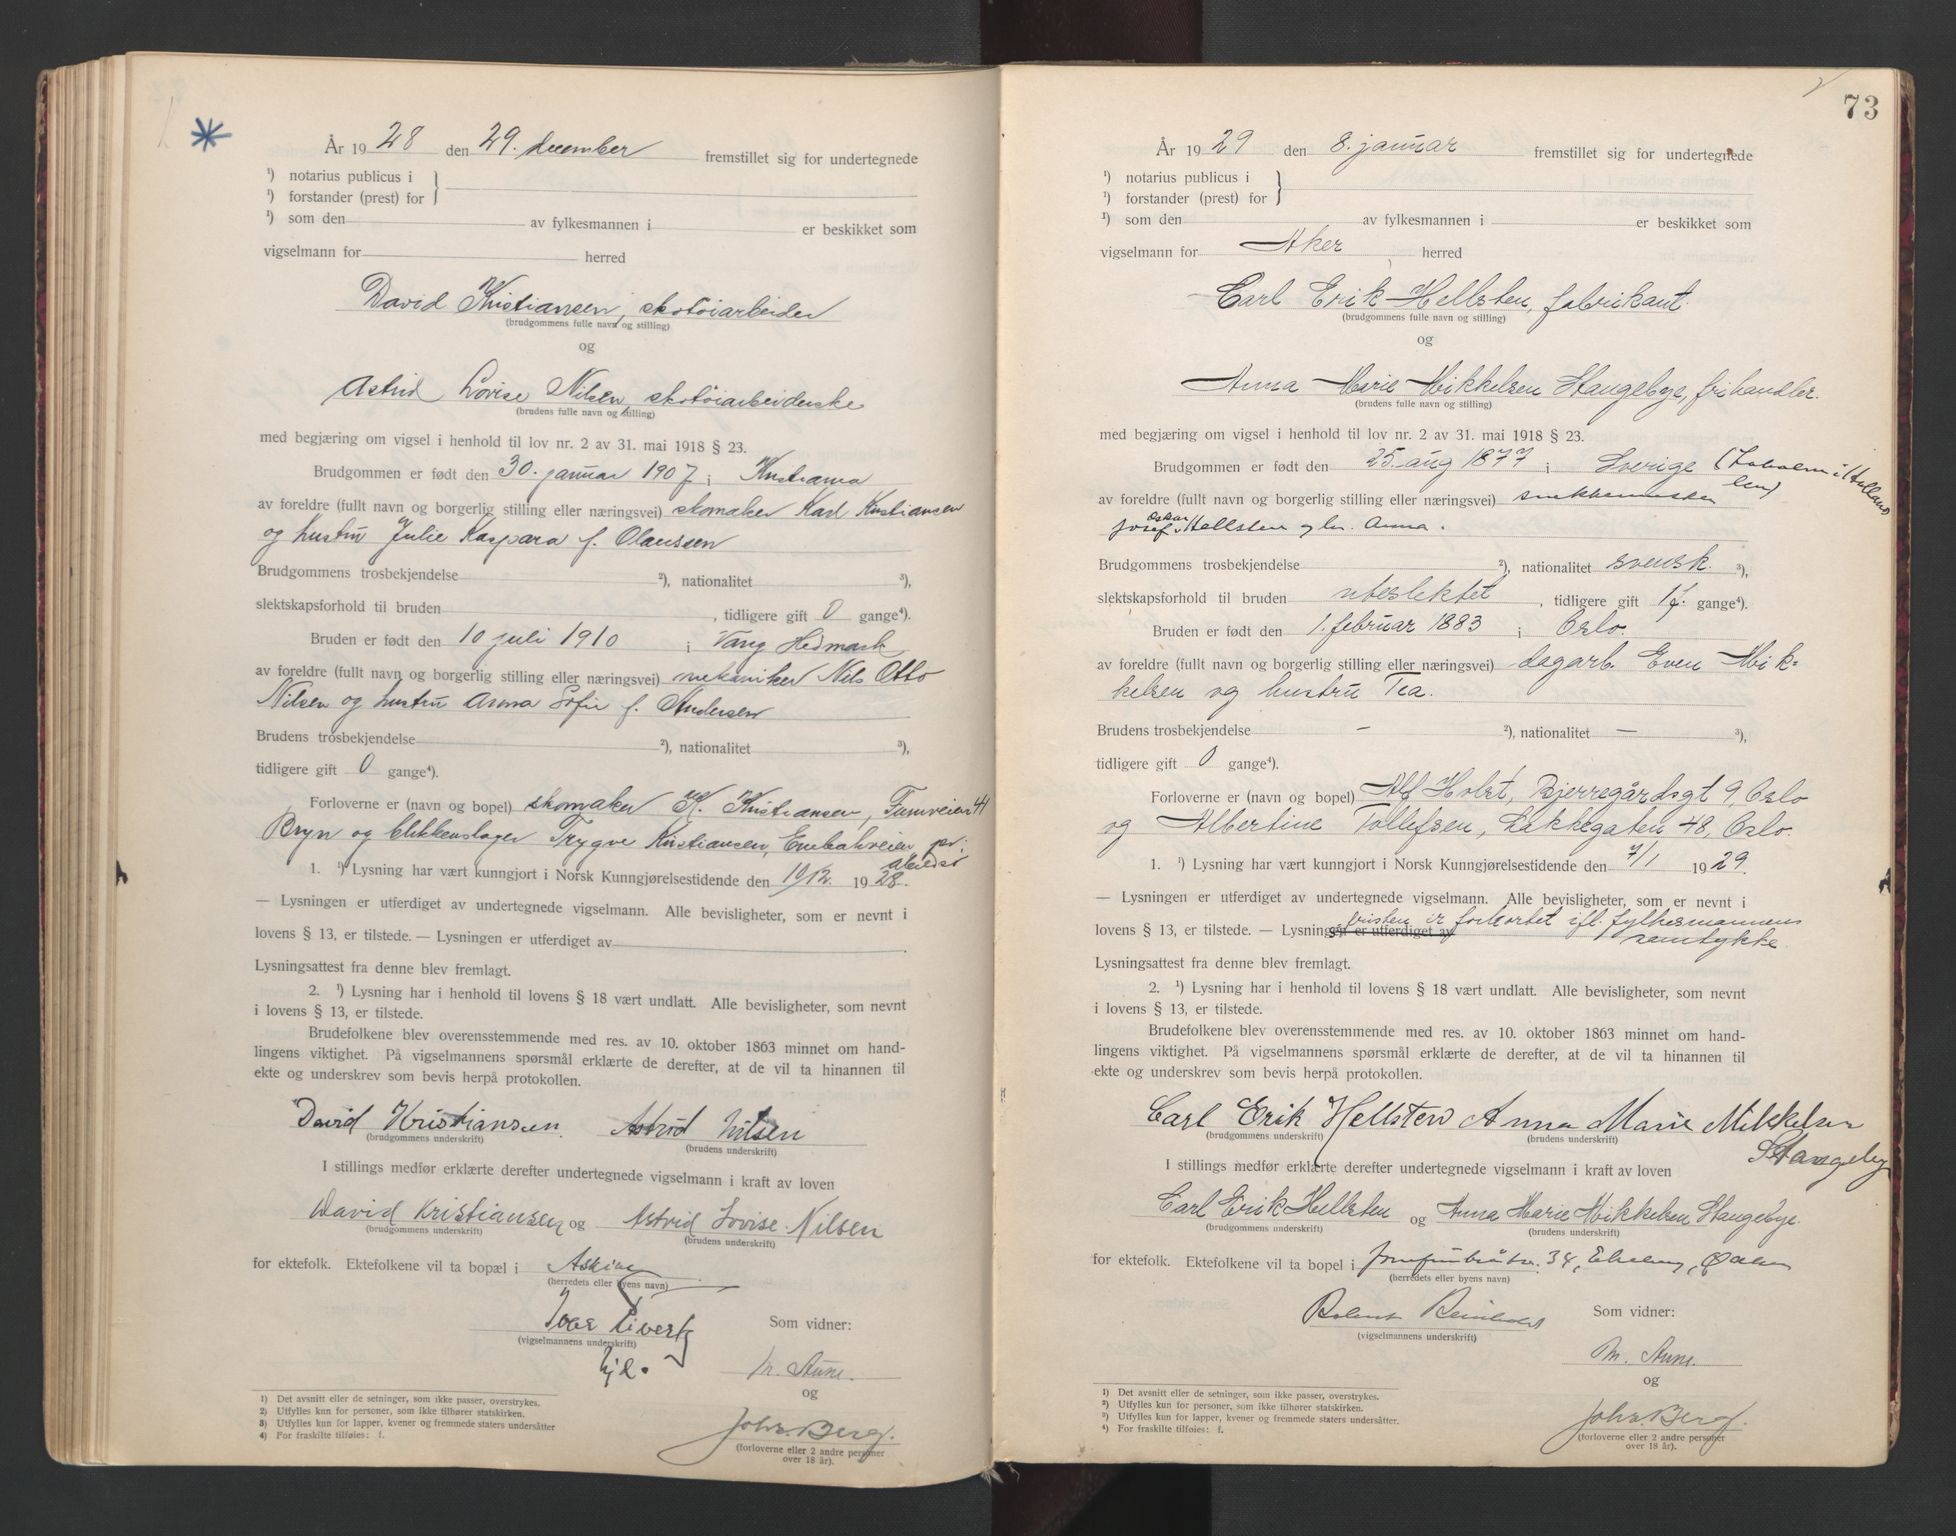 År 1928 den 29. december fremstillet sig for undertegnede
¹) notarius publicus i
¹) forstander (prest) for
¹) som den av fylkesmannen i er beskikket som
vigselmann for herred
David Kristiansen, skotøiarbeider
(brudgommens fulle navn og stilling)
og
Astrid Lovise Nilsen skotøiarbeiderske
(brudens fulle navn og stilling)
med begjæring om vigsel i henhold til lov nr. 2 av 31. mai 1918 § 23.
Brudgommen er født den 30. januar 1907 i Kristiania
av foreldre (fullt navn og borgerlig stilling eller næringsvei) skomaker Karl Kristiansen
og hustru Julie Kaspara f. Olaussen
Brudgommens trosbekjendelse ²), nationalitet ³),
slektskapsforhold til bruden , tidligere gift 0 gange⁴).
Bruden er født den 10 juli 1910 i Vang Hedmark
av foreldre (fullt navn og borgerlig stilling eller næringsvei) mekaniker Nils Otto
Nilsen og hustru Anna Sofie f. Andersen
Brudens trosbekjendelse ²), nationalitet ³),
tidligere gift 0 gange⁴).
Forloverne er (navn og bopel) skomaker K. Kristiansen, 44
Bryn og blikkenslager Trygve Kristiansen, Enebakveien pr.
1. ¹) Lysning har vært kunngjort i Norsk Kunngjørelsestidende den 19/12. 1928.
— Lysningen er utferdiget av undertegnede vigselmann. Alle bevisligheter, som er nevnt i
lovens § 13, er tilstede. — Lysningen er utferdiget av
Lysningsattest fra denne blev fremlagt.
2. ¹) Lysning har i henhold til lovens § 18 vært undlatt. Alle bevisligheter, som nevnt
i lovens § 13, er tilstede.
Brudefolkene blev overensstemmende med res. av 10. oktober 1863 minnet om hand-
lingens viktighet. På vigselmannens spørsmål erklærte de derefter, at de vil ta hinannen til
ekte og underskrev som bevis herpå protokollen.
David Kristiansen. Astrid Nilsen
(brudgommens underskrift) (brudens underskrift)
I stillings medfør erklærte derefter undertegnede vigselmann i kraft av loven
David Kristiansen og Astrid Lovise Nilsen
(brudgommens underskrift) (brudens underskrift)
for ektefolk. Ektefolkene vil ta bopæl i
(herredets eller byens navn)
Som vidner:
(vigselmannens underskrift)
M. Aune.
og
Johs. Berg.
(forloverne eller 2 andre personer
over 18 år).
1) Det avsnitt eller de setninger, som ikke passer, overstrykes.
2) Utfylles kun for personer, som ikke tilhører statskirken.
3) Utfylles kun for lapper, kvener og fremmede staters undersåtter
4) For fraskilte tilføies: f.
73
År 1929 den 8. januar fremstillet sig for undertegnede
¹) notarius publicus i
¹) forstander (prest) for
¹) som den av fylkesmannen i er beskikket som
vigselmann for Aker herred
Carl Erik Hellsten, fabrikant.
(brudgommens fulle navn og stilling)
og
Anna Marie Mikkelsen Stangebye, frihandler.
(brudens fulle navn og stilling)
med begjæring om vigsel i henhold til lov nr. 2 av 31. mai 1918 § 23.
Brudgommen er født den 25. aug 1877 i Sverige
av foreldre (fullt navn og borgerlig stilling eller næringsvei) snekkermester
Josef Oskar Hellsten og h. Anna.
Brudgommens trosbekjendelse ²), nationalitet svensk. ³),
slektskapsforhold til bruden ubeslektet , tidligere gift 1 f. gange⁴).
Bruden er født den 1. februar 1883 i Oslo.
av foreldre (fullt navn og borgerlig stilling eller næringsvei) dagarb. Even Mik-
kelsen og hustru Tea.
Brudens trosbekjendelse — ²), nationalitet — ³),
tidligere gift 0 gange⁴).
Forloverne er (navn og bopel) Alf Holst, Bjerregårdsgt 9, Oslo
og Albertine Tollefsen, Lakkegaten 48, Oslo.
1. ¹) Lysning har vært kunngjort i Norsk Kunngjørelsestidende den 7/1 1929.
— Lysningen er utferdiget av undertegnede vigselmann. Alle bevisligheter, som er nevnt i
fristen er forkortet ifl. fylkesmannens
lovens § 13, er tilstede. — Lysningen er utferdiget av samtykke.
Lysningsattest fra denne blev fremlagt.
2. ¹) Lysning har i henhold til lovens § 18 vært undlatt. Alle bevisligheter, som nevnt
i lovens § 13, er tilstede.
Brudefolkene blev overensstemmende med res. av 10. oktober 1863 minnet om hand-
lingens viktighet. På vigselmannens spørsmål erklærte de derefter, at de vil ta hinannen til
ekte og underskrev som bevis herpå protokollen.
Carl Erik Hellsten Anna Marie Mikkelsen
(brudgommens underskrift) (brudens underskrift)
Stangeby
I stillings medfør erklærte derefter undertegnede vigselmann i kraft av loven
Carl Erik Hellsten og Anna Marie Mikkelsen Stangebye.
(brudgommens underskrift) (brudens underskrift)
for ektefolk. Ektefolkene vil ta bopel i 34,
(herredets eller byens navn)
Som vidner:
(vigselmannens underskrift)
M. Aune.
og
Johs. Berg.
(forloverne eller 2 andre personer
over 18 år).
1) Det avsnitt eller de setninger, som ikke passer, overstrykes.
2) Utfylles kun for personer, som ikke tilhører statskirken.
3) Utfylles kun for lapper, kvener og fremmede staters undersåtter.
4) For fraskilte tilføies: f.